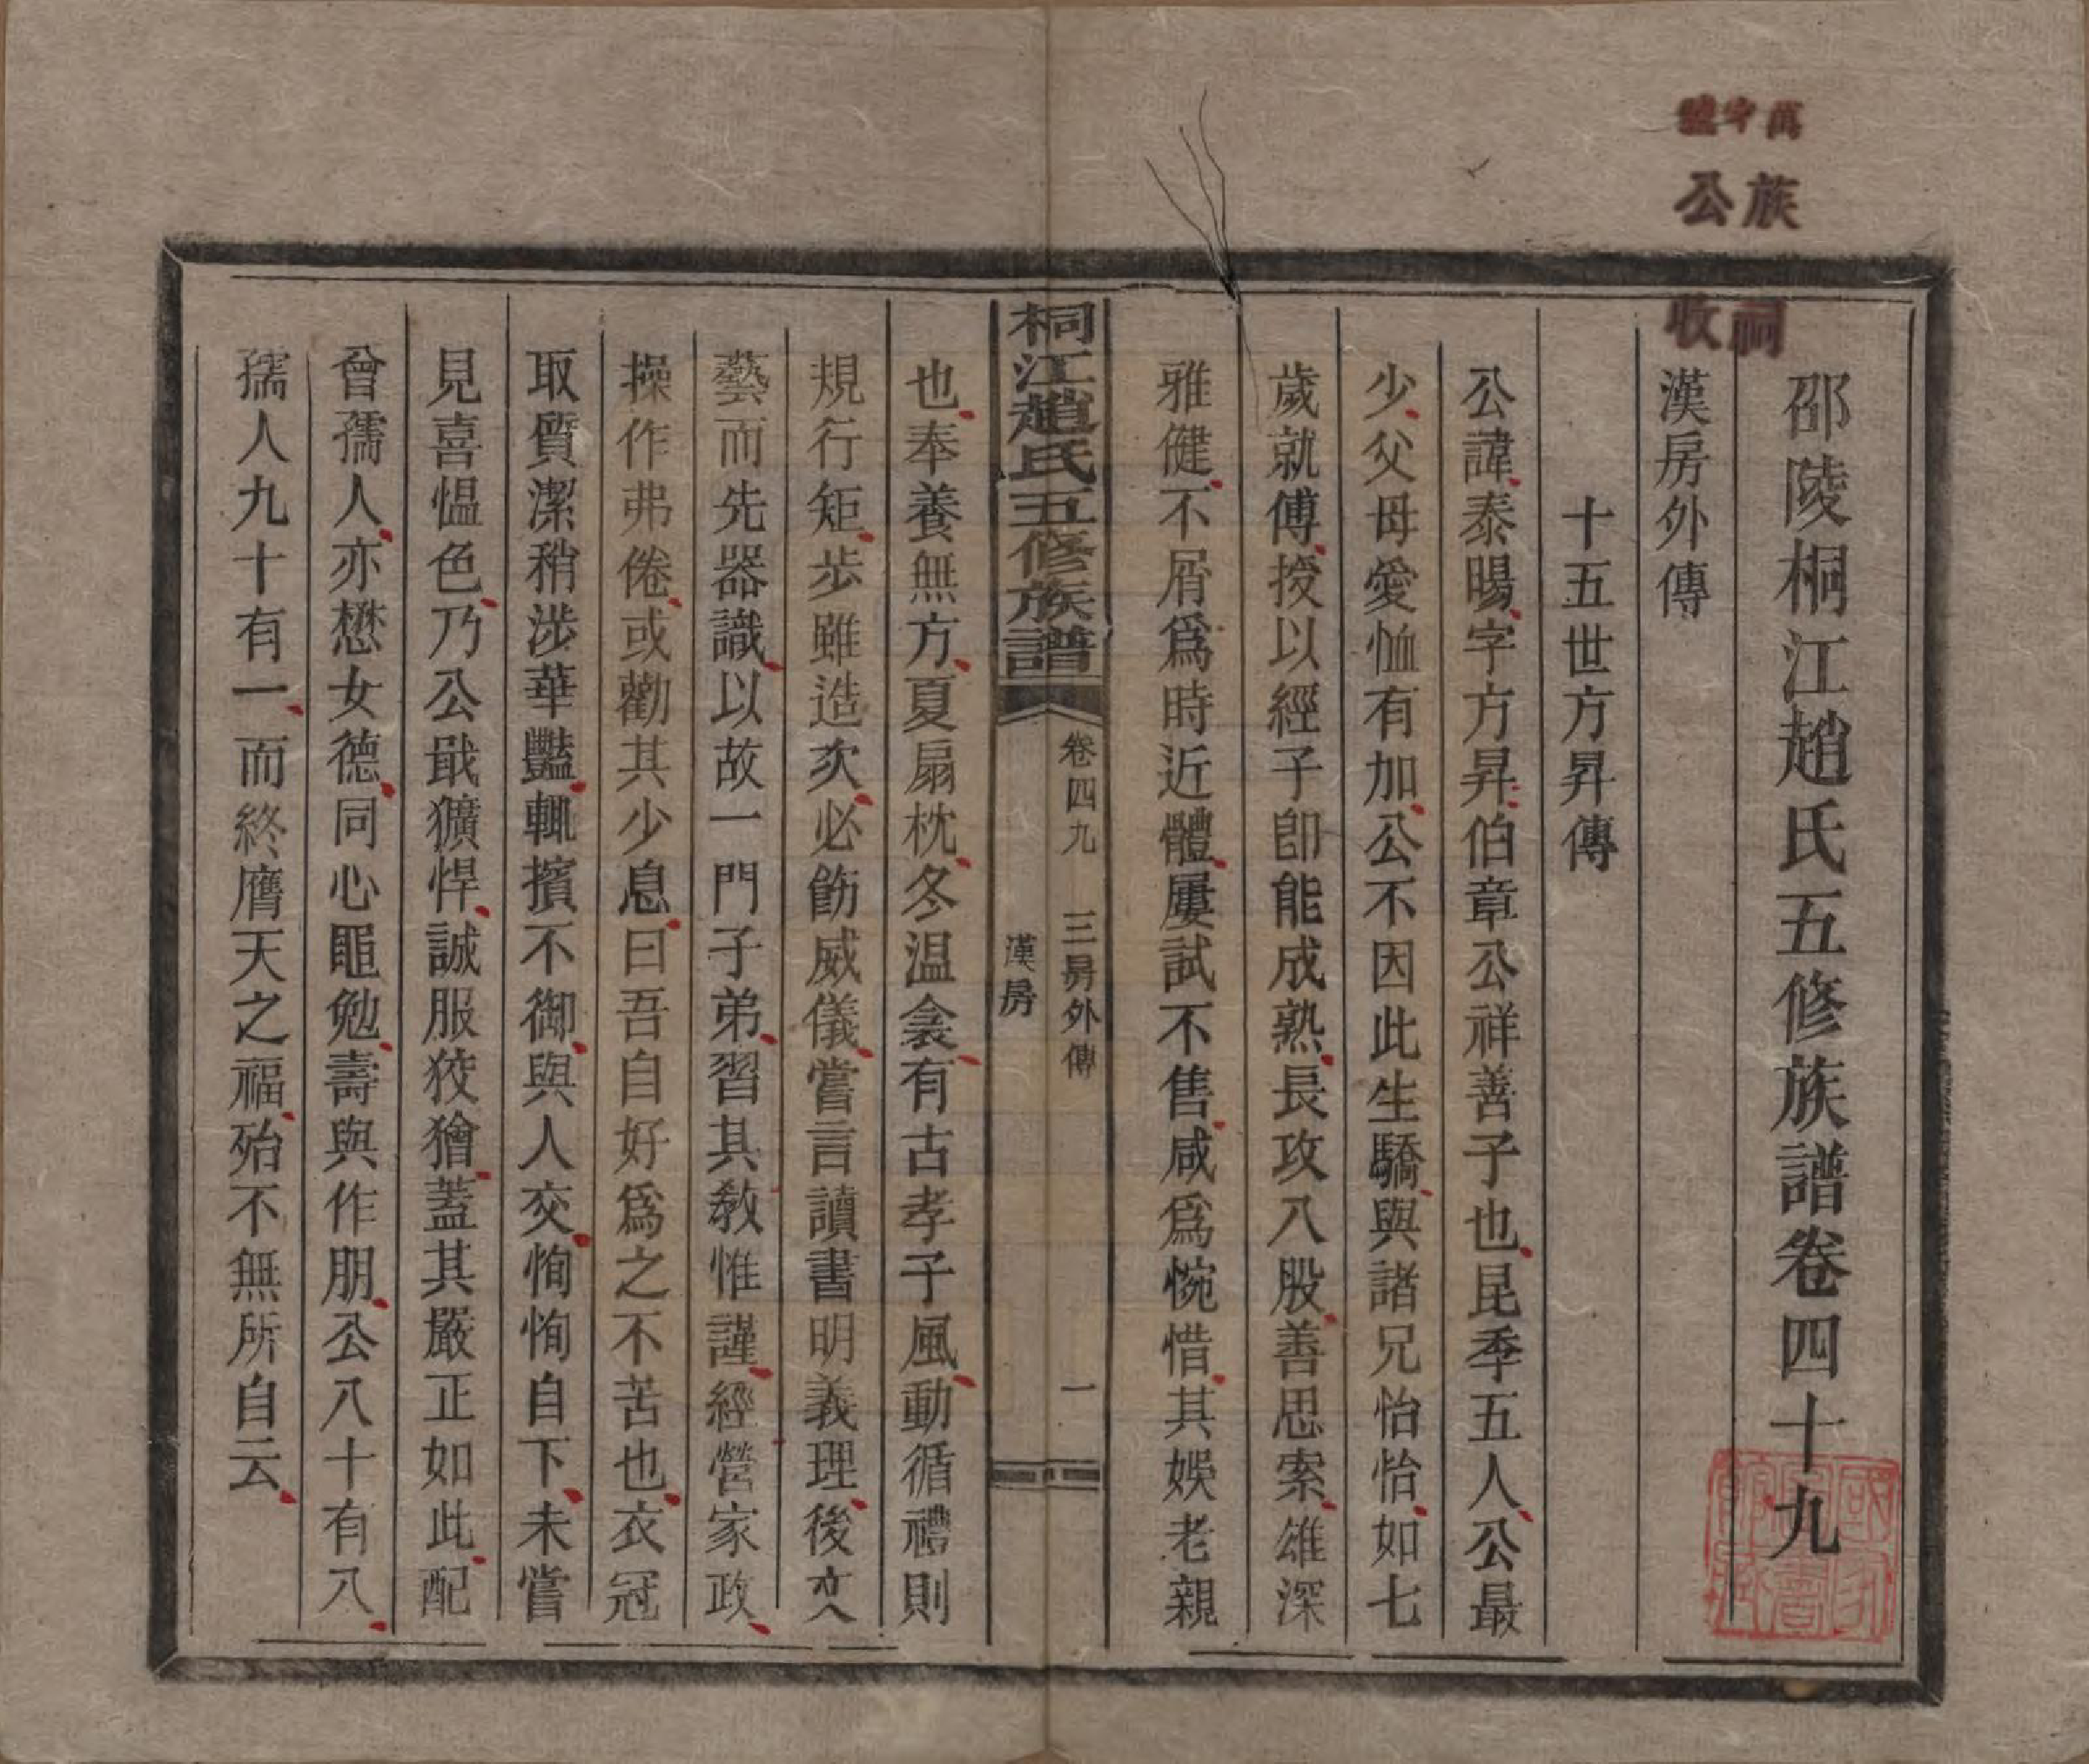 邵陵桐江趙氏五修族譜卷四十九
漢房外傳
十五世方昇傳
公諱泰暘字方昇伯章公祥善子也昆季五人公最
少父母愛恤有加公不因此生驕與諸兄怡怡如七
歲就傅授以經子卽能成熟長攻八股善思索雄深
雅健不屑爲時近體屢試不售咸爲惋惜其娛老親
桐江趙氏五修族譜
卷四九 三房外傳 一
漢房
也奉養無方夏扇枕冬温衾有古孝子風動循禮則
規行矩步雖造次必飭威儀嘗言讀書明義理後文
藝而先器識以故一門子弟習其教惟謹經營家政
操作弗倦或勸其少息曰吾自好爲之不苦也衣冠
取質潔稍涉華豔輒擯不御與人交恂恂自下未嘗
見喜慍色乃公戢獷悍誠服狡獪蓋其嚴正如此配
曾孺人亦懋女德同心黽勉壽與作朋公八十有八
孺人九十有一而終膺天之福殆不無所自云
族公
祠收